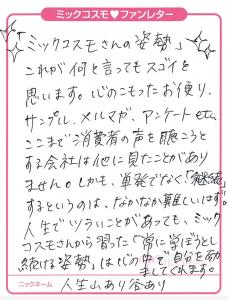 ミックコスモ♥ファンレター
「ミックコスモさんの姿勢」
これが何と言ってもスゴイと
思います。心のこもったお便り、
サンプル、メルマガ、アンケートetc.
ここまで消費者の声を聴こうと
する会社は他に見たことがあり
ません。しかも、単発でなく「継続」
するというのは、なかなか難しいはず。
人生でツラいことがあっても、ミック
コスモさんから習った「常に学ぼうとし
続ける姿勢」は心の中で自分を励
ましてくれます。
ニックネーム 人生山あり谷あり